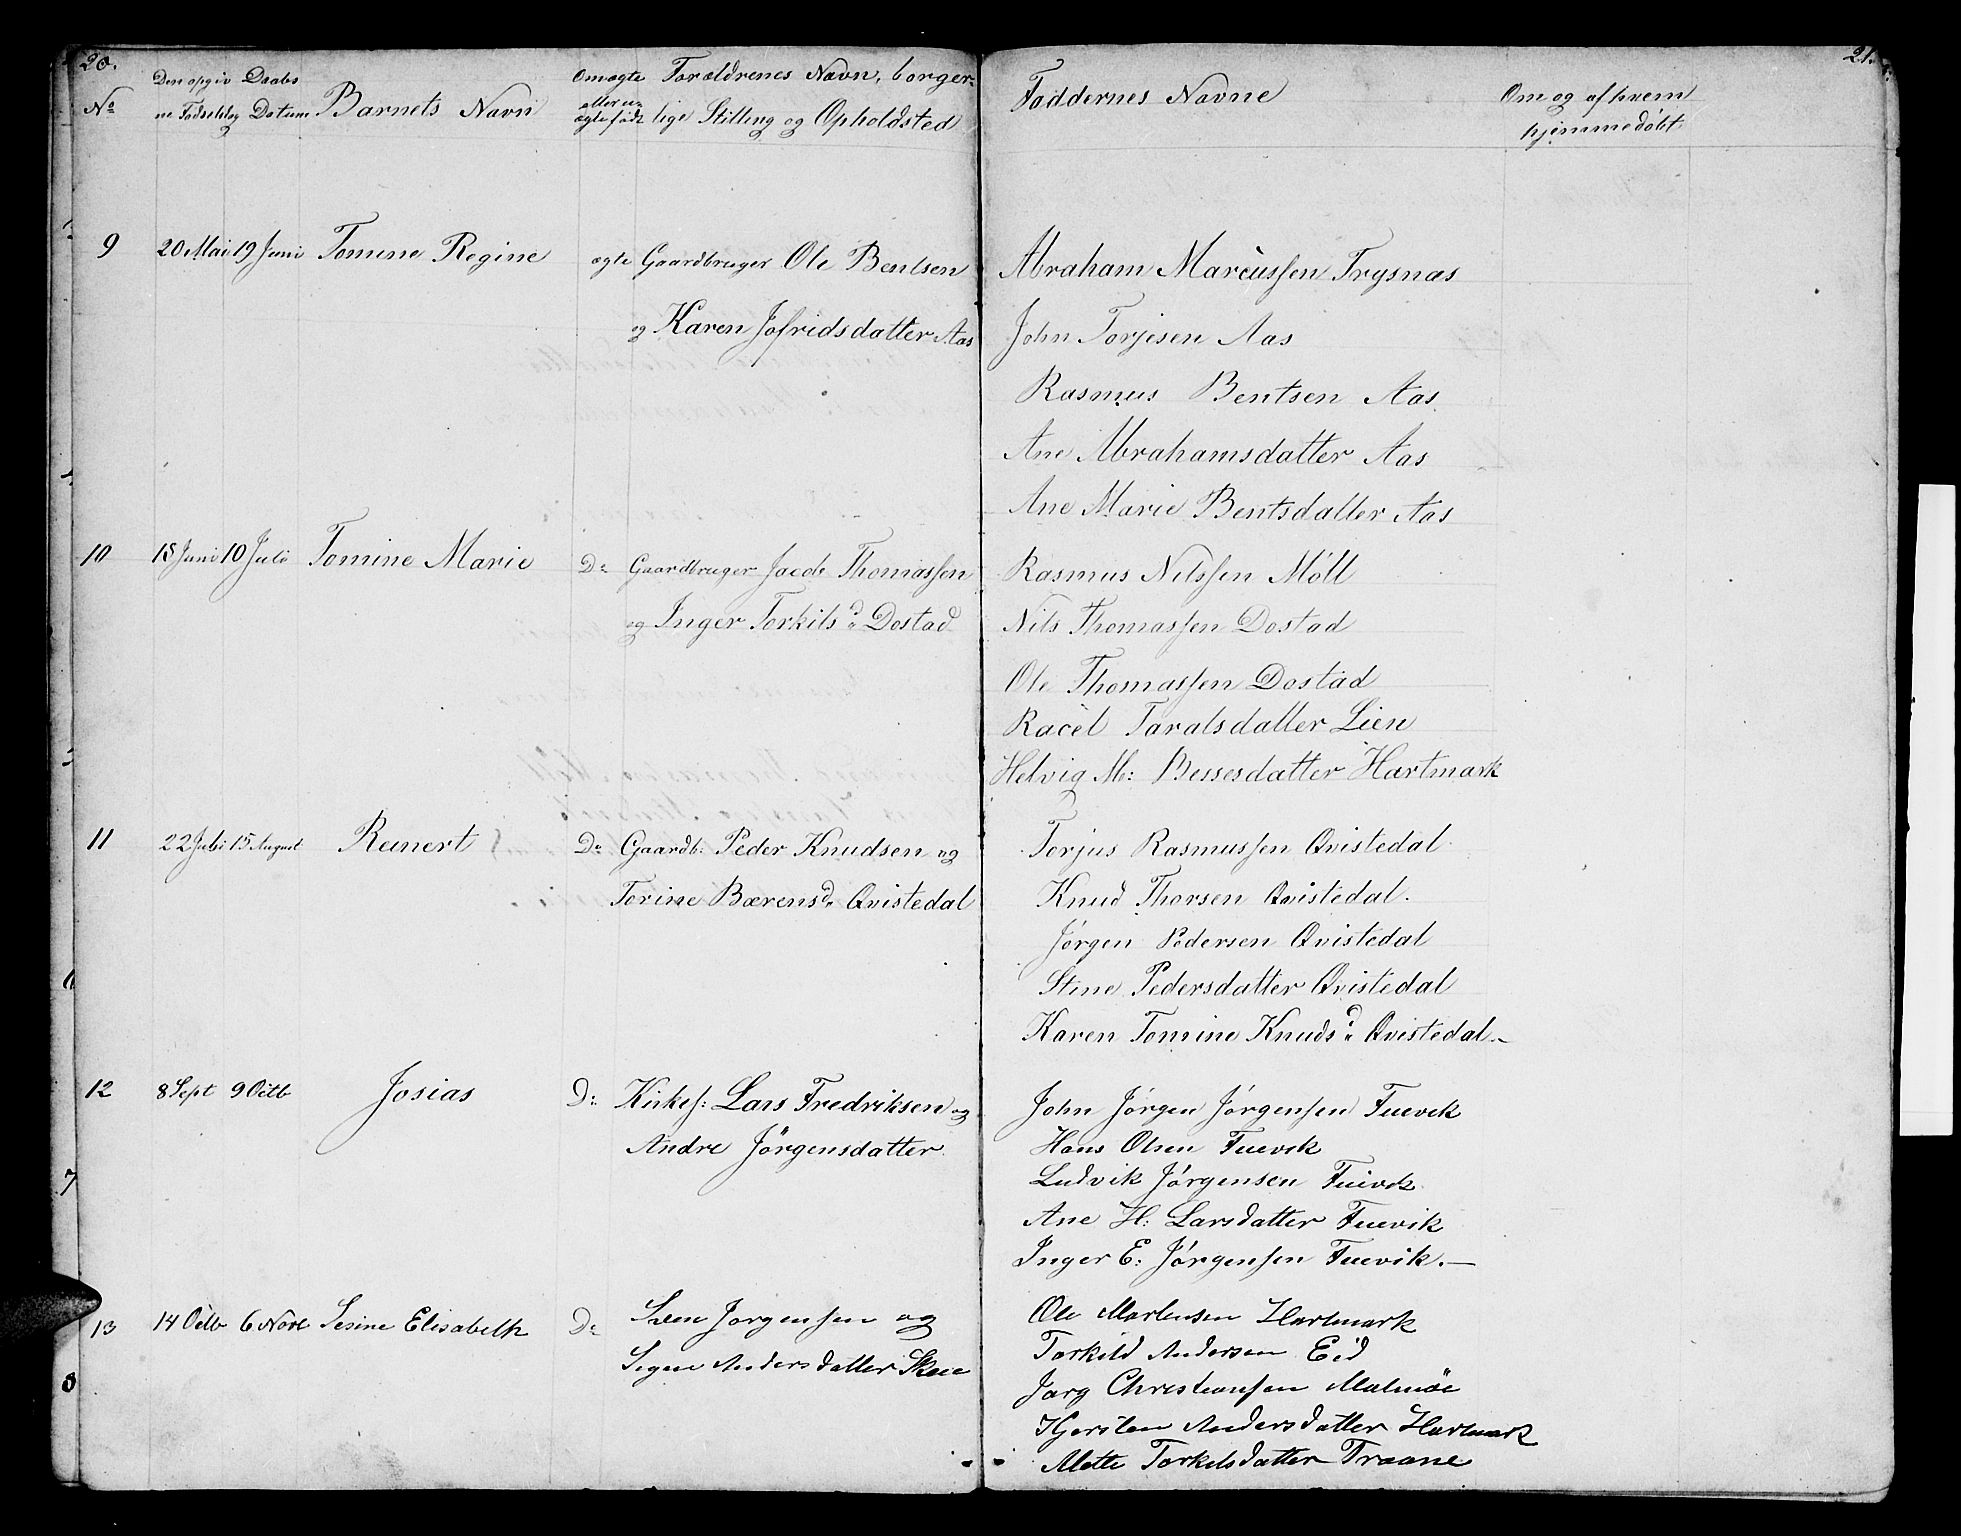 20.
21.
No Den opgivne Fødseldag Daabs Datum Barnets Navn Om ægte eller uægte født Forældrenes Navn, borgerlige Stilling og Opholdsted
Faddernes Navne
Om og af hvem hjemmedøbt
9 20 Mai 19 Juni Tomine Regine ægte Gaardbruger Ole Bentsen
og Karen Jofridsdatter Aas
Abraham Marcussen Trysnæs
John Torjesen Aas
Rasmus Bentsen Aas
Ane Abrahamsdatter Aas
Ane Marie Bentsdatter Aas
10 15 Juni 10 Juli Tomine Marie Do Gaardbruger Jacob Thomassen
og Inger Torkilsd. Dostad
Rasmus Nilssen Möll
Nils Thomassen Dostad
Ole Thomassen Dostad
Racel Taralsdatter Lien
Helvig M: Bessesdatter Hartmark
11 22 Juli 15 August Reinert Do Gaardb: Peder Knudsen og
Torine Bærensd. Qvistedal
Torjus Rasmussen Qvistedal
Knud Thorsen Qvistedal.
Jørgen Pedersen Qvistedal
Stine Pedersdatter Qvistedal
Karen Tomine Knudsd. Qvistedal.-
12 8 Sept 9 Octb Josias Do Kirkes: Lars Fredriksen og
Andre Jörgensdatter
John Jörgen Jörgensen Tuevik
Hans Olsen Tuevik
Ludvik Jörgensen Tuevik
Ane H: Larsdatter Tuevik
Inger E: Jörgensen Tuevik.-
13 14 Octb 6 Novb Sesine Elisabeth Do Sven Jorgensen og
Signe Andersdatter Skeie
Ole Martensen Hartmark
Torkild Andersen Eid
Jorg Christiansen Malmöe
Kjersten Andersdatter Hartmark
Mette Torkelsdatter Traane
7
8